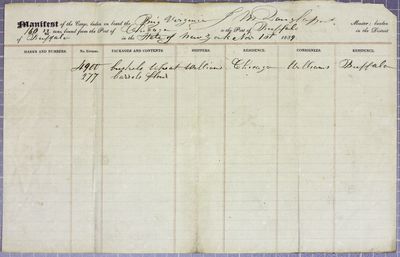 Manifest of the Cargo, laden on board the Brig Virginia Master; burden
160 tons, bound from the Port of Chicago to the Port of Buffalo in the District
of Buffalo in the State of New York Nov 1st 1839
MARKS AND NUMBERS. No. Entries. PACKAGES AND CONTENTS SHIPPERS. RESIDENCE. CONSIGNEES. RESIDENCE.
4900 bushels Wheat Williams Chicago Williams Buffalo
277 barrels flour